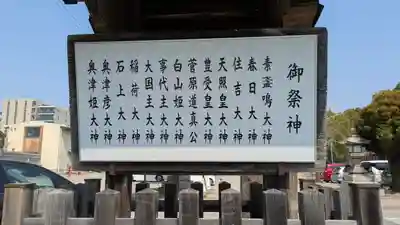 御祭神
素盞鳴大神
春日大神
住吉大神
天照皇大神
豊受皇大神
菅原道真公
白山姫大神
事代主大神
大国主大神
稲荷大神
石上大神
奥津彦大神
奥津姫大神